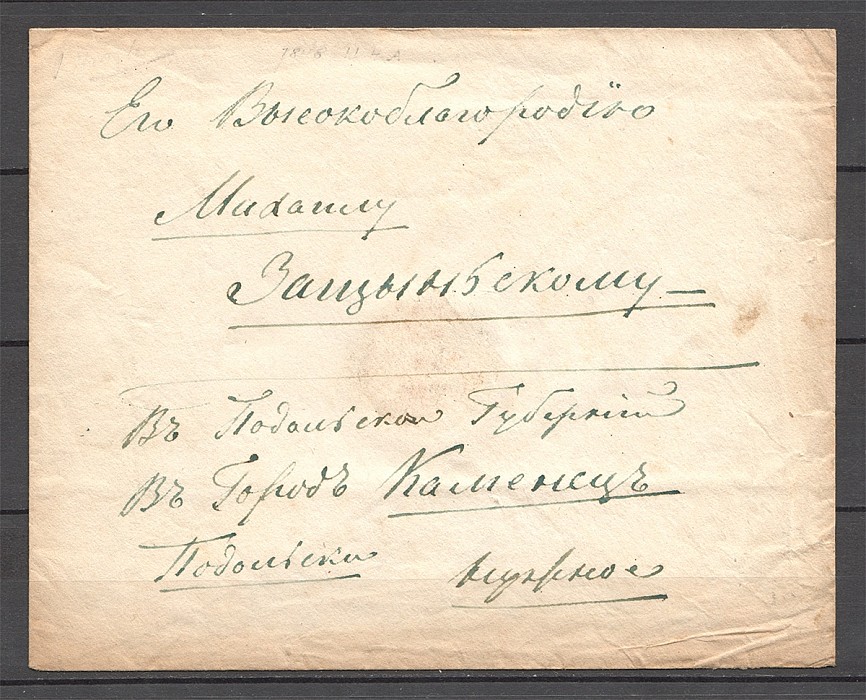 Его Высокоблагородїю
Михаилу
Защыньскому
Въ Подольской Губернїи
Въ Городъ Каменецъ
Подольски нужное